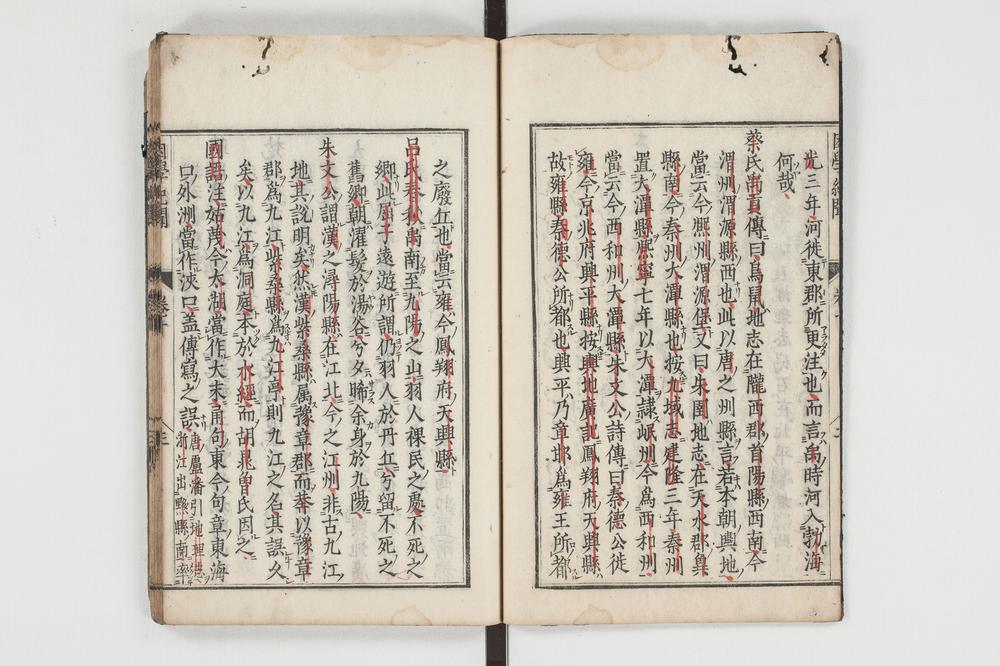 光三年河徙東郡所更注也而言禹時河入勃海
何哉
蔡氏禹貢傳曰鳥鼠地志在隴西郡首陽縣西南今
渭州渭源縣西也此以唐之州縣言若本朝輿地
當云今熙州渭源堡又曰朱圉地志在天水郡冀
縣南今秦州大潭縣也按九域志建隆三年秦州
置大潭縣熙寧七年以大潭隷岷州今爲西和州
當云今西和州大潭縣朱文公詩傳曰秦德公徙
雍今京兆府興平縣按輿地廣記鳳翔府天興縣
故雍縣秦德公所都也興平乃章邯爲雍王所都
之廢丘也當云雍今鳳翔府天興縣
呂氏春秋禹南至九陽之山羽人裸民之處不死之
鄉此屈子遠遊所謂仍羽人於丹丘兮留不死之
舊鄉朝濯髮於湯谷兮夕晞余身於九陽
朱文公謂漢之潯陽縣在江北今之江州非古九江
地其說明矣然漢柴桑縣属豫章郡而莽以豫章
郡爲九江柴桑縣爲九江亭則九江之名其誤久
矣以九江爲洞庭本於水經而胡晁曾氏因之
國語注姑蔑今大湖當作大末甬句東今句章東海
口外洲當作浹口蓋傳寫之誤
唐盧潘引地理志
浙江出黟縣南率
困學紀聞
卷十